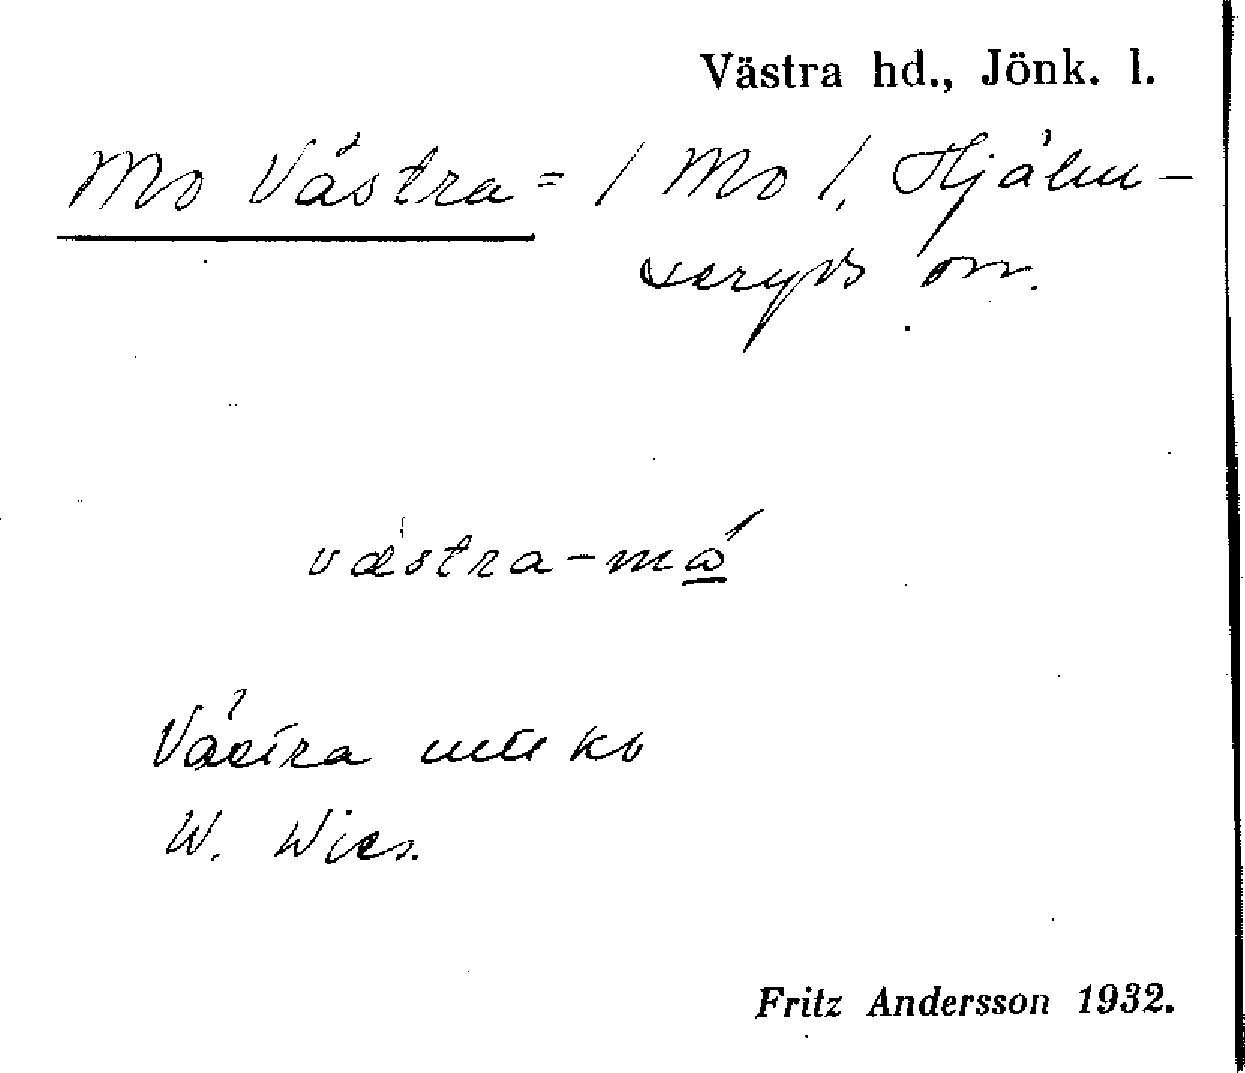 Västra hd., Jönk. l.
Mo Västra = / Mo /, Hjälm-
seryds
västra-må
Västra
W. Wies.
Fritz Andersson 1932.